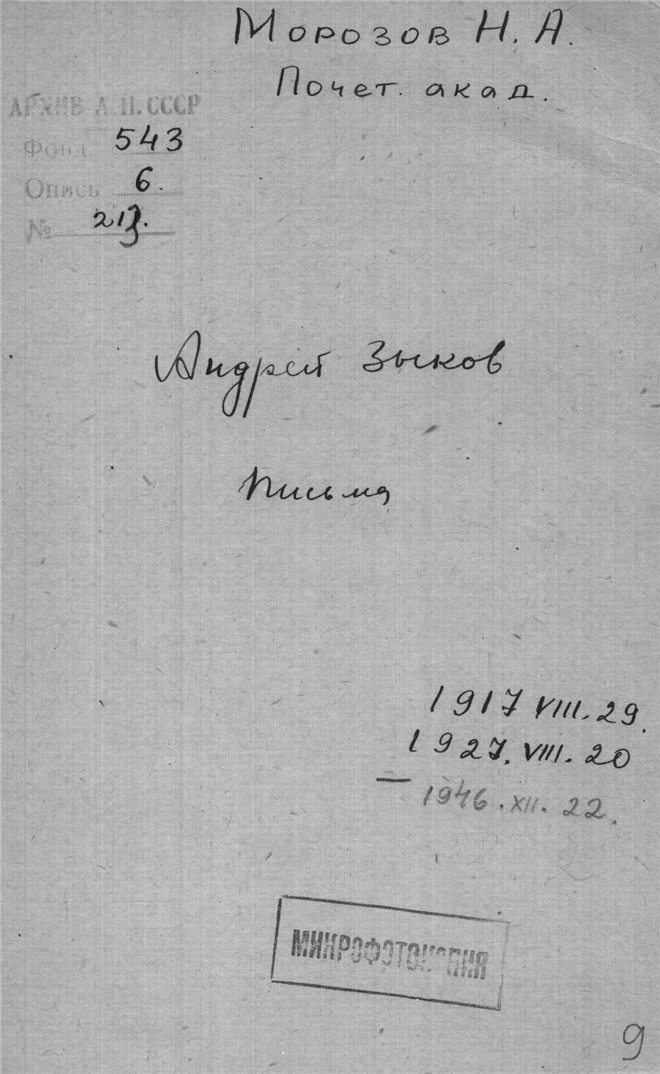 Морозов Н. А.
Почет. акад.
АРХИВ А. Н. СССР
Фонд 543
Опись 6.
№ 213.
Андрей Зыков
Письма
1917 VIII. 29.
1927. VIII. 20
— 1946. XII. 22.
МИКРОФОТОКОПИЯ
9